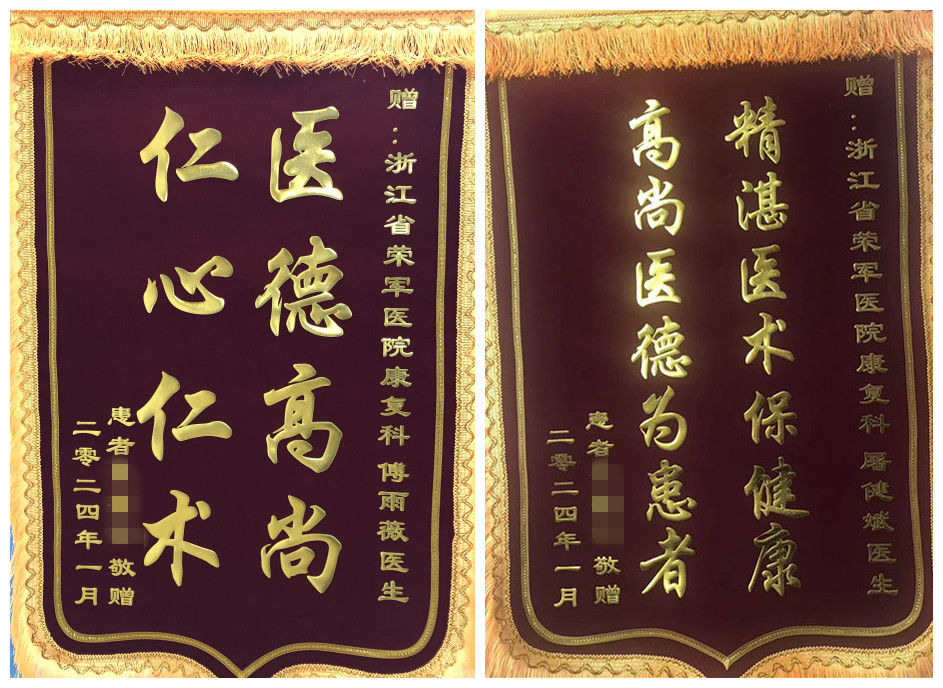 赠：浙江省荣军医院康复科 傅雨薇医生
医德高尚
仁心仁术
患者 敬赠
二零二四年一月
赠：浙江省荣军医院康复科 屠健斌医生
精湛医术保健康
高尚医德为患者
患者 敬赠
二零二四年一月